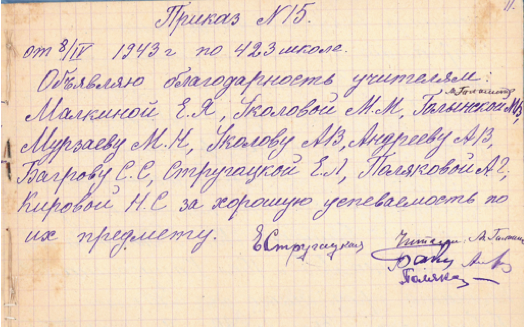 11.
Приказ №15.
от 8/IV 1943 г по 423 школе.
Объявляю благодарность учителям:
Малкиной Е.Я, Уколовой М.М, Голынской М.В,
Мурзаеву М.Н, Уколову А.В, Андрееву А.В,
Багрову С.С, Стругацкой Е.Л, Поляковой А.Г,
Кировой Н.С за хорошую успеваемость по
их предмету.
ЕСтругацкая
Читали: